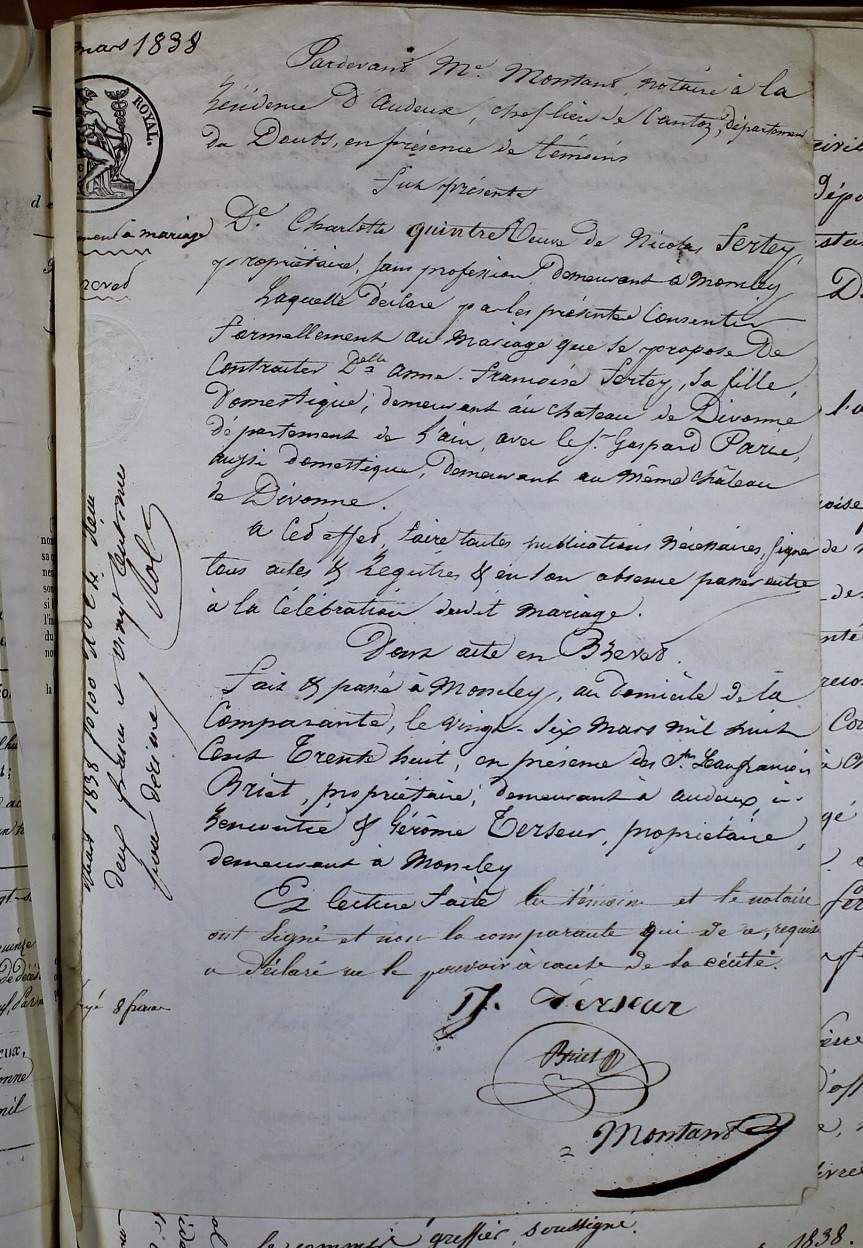 mars 1838
ROYAL.
Pardevant Me. Montand, notaire à la
Résidence d'Audeux, chef lieu de Canton, département
du Doubs, en présence de témoins
Fut présente
De. Charlotte quintre Veuve de Nicolas Fertey,
propriétaire, sans profession demeurant à Moncley
Laquelle déclare par les présentes Consentir
formellement au Mariage que se propose de
Contracter Delle anne-françoise Fertey, Sa fille,
Domestique, demeurant au chateau de Divonne
département de l'ain, avec le Sr. Gaspard Parie,
aussi domestique, demeurant au même château
de Divonne.
a Ces effets, faire toutes publications nécessaires, signer
tous actes & Régistres & en son absence passer outre
à la Célébration dudit mariage.
Dont acte en Brevet.
Fait & passé à Moncley, au domicile de la
Comparante, le vingt-six Mars mil huit
Cent Trente huit, en présence des Srs. Jean françois
Briet, propriétaire, demeurant à audeux, à
& Gérôme Terseur, propriétaire,
demeurant à Moncley
Et lecture faite les témoins et le notaire
ont signé et non la comparante qui de ce, requise
a déclaré ne le pouvoir à cause de sa cécité.
J. Terseur
Briet
Montand
ment à mariage
Brevet
1838 folio
deux francs et vingt centimes
pour décime
payé 8 francs
le commis greffier, soussigné.
1838.